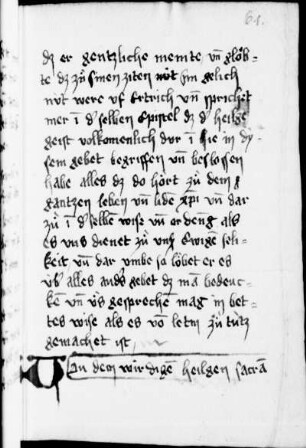 61.
dz er gentzliche meinte vn̄ glob-
te dz zů sinen ziten nüt sin gelich
nüt were vf ertrich vn̄ sprichet
mer ī dˢ selben epistel dz dˢ heilge
geist volkomenlich dor ī hie in di-
sem gebet begriffen vn̄ beslossen
habe alles dz do hört zů dem
gantzen leben vn̄ lidē xp̄i vn̄ dar
zů ī dˢ selbē wise vn̄ ordeng als
es vns dienet zů vnsˢ ewigē seli-
keit vn̄ dar vmbe so lobet er es
v̈bˢ alles andˢs gebet dz mā bedenc-
kē vn̄ v̈s gesprechē mag in bet-
tes wise als es vō letin zů tütz
gemachet ist
Uan dem wirdigē heilgen sacrā